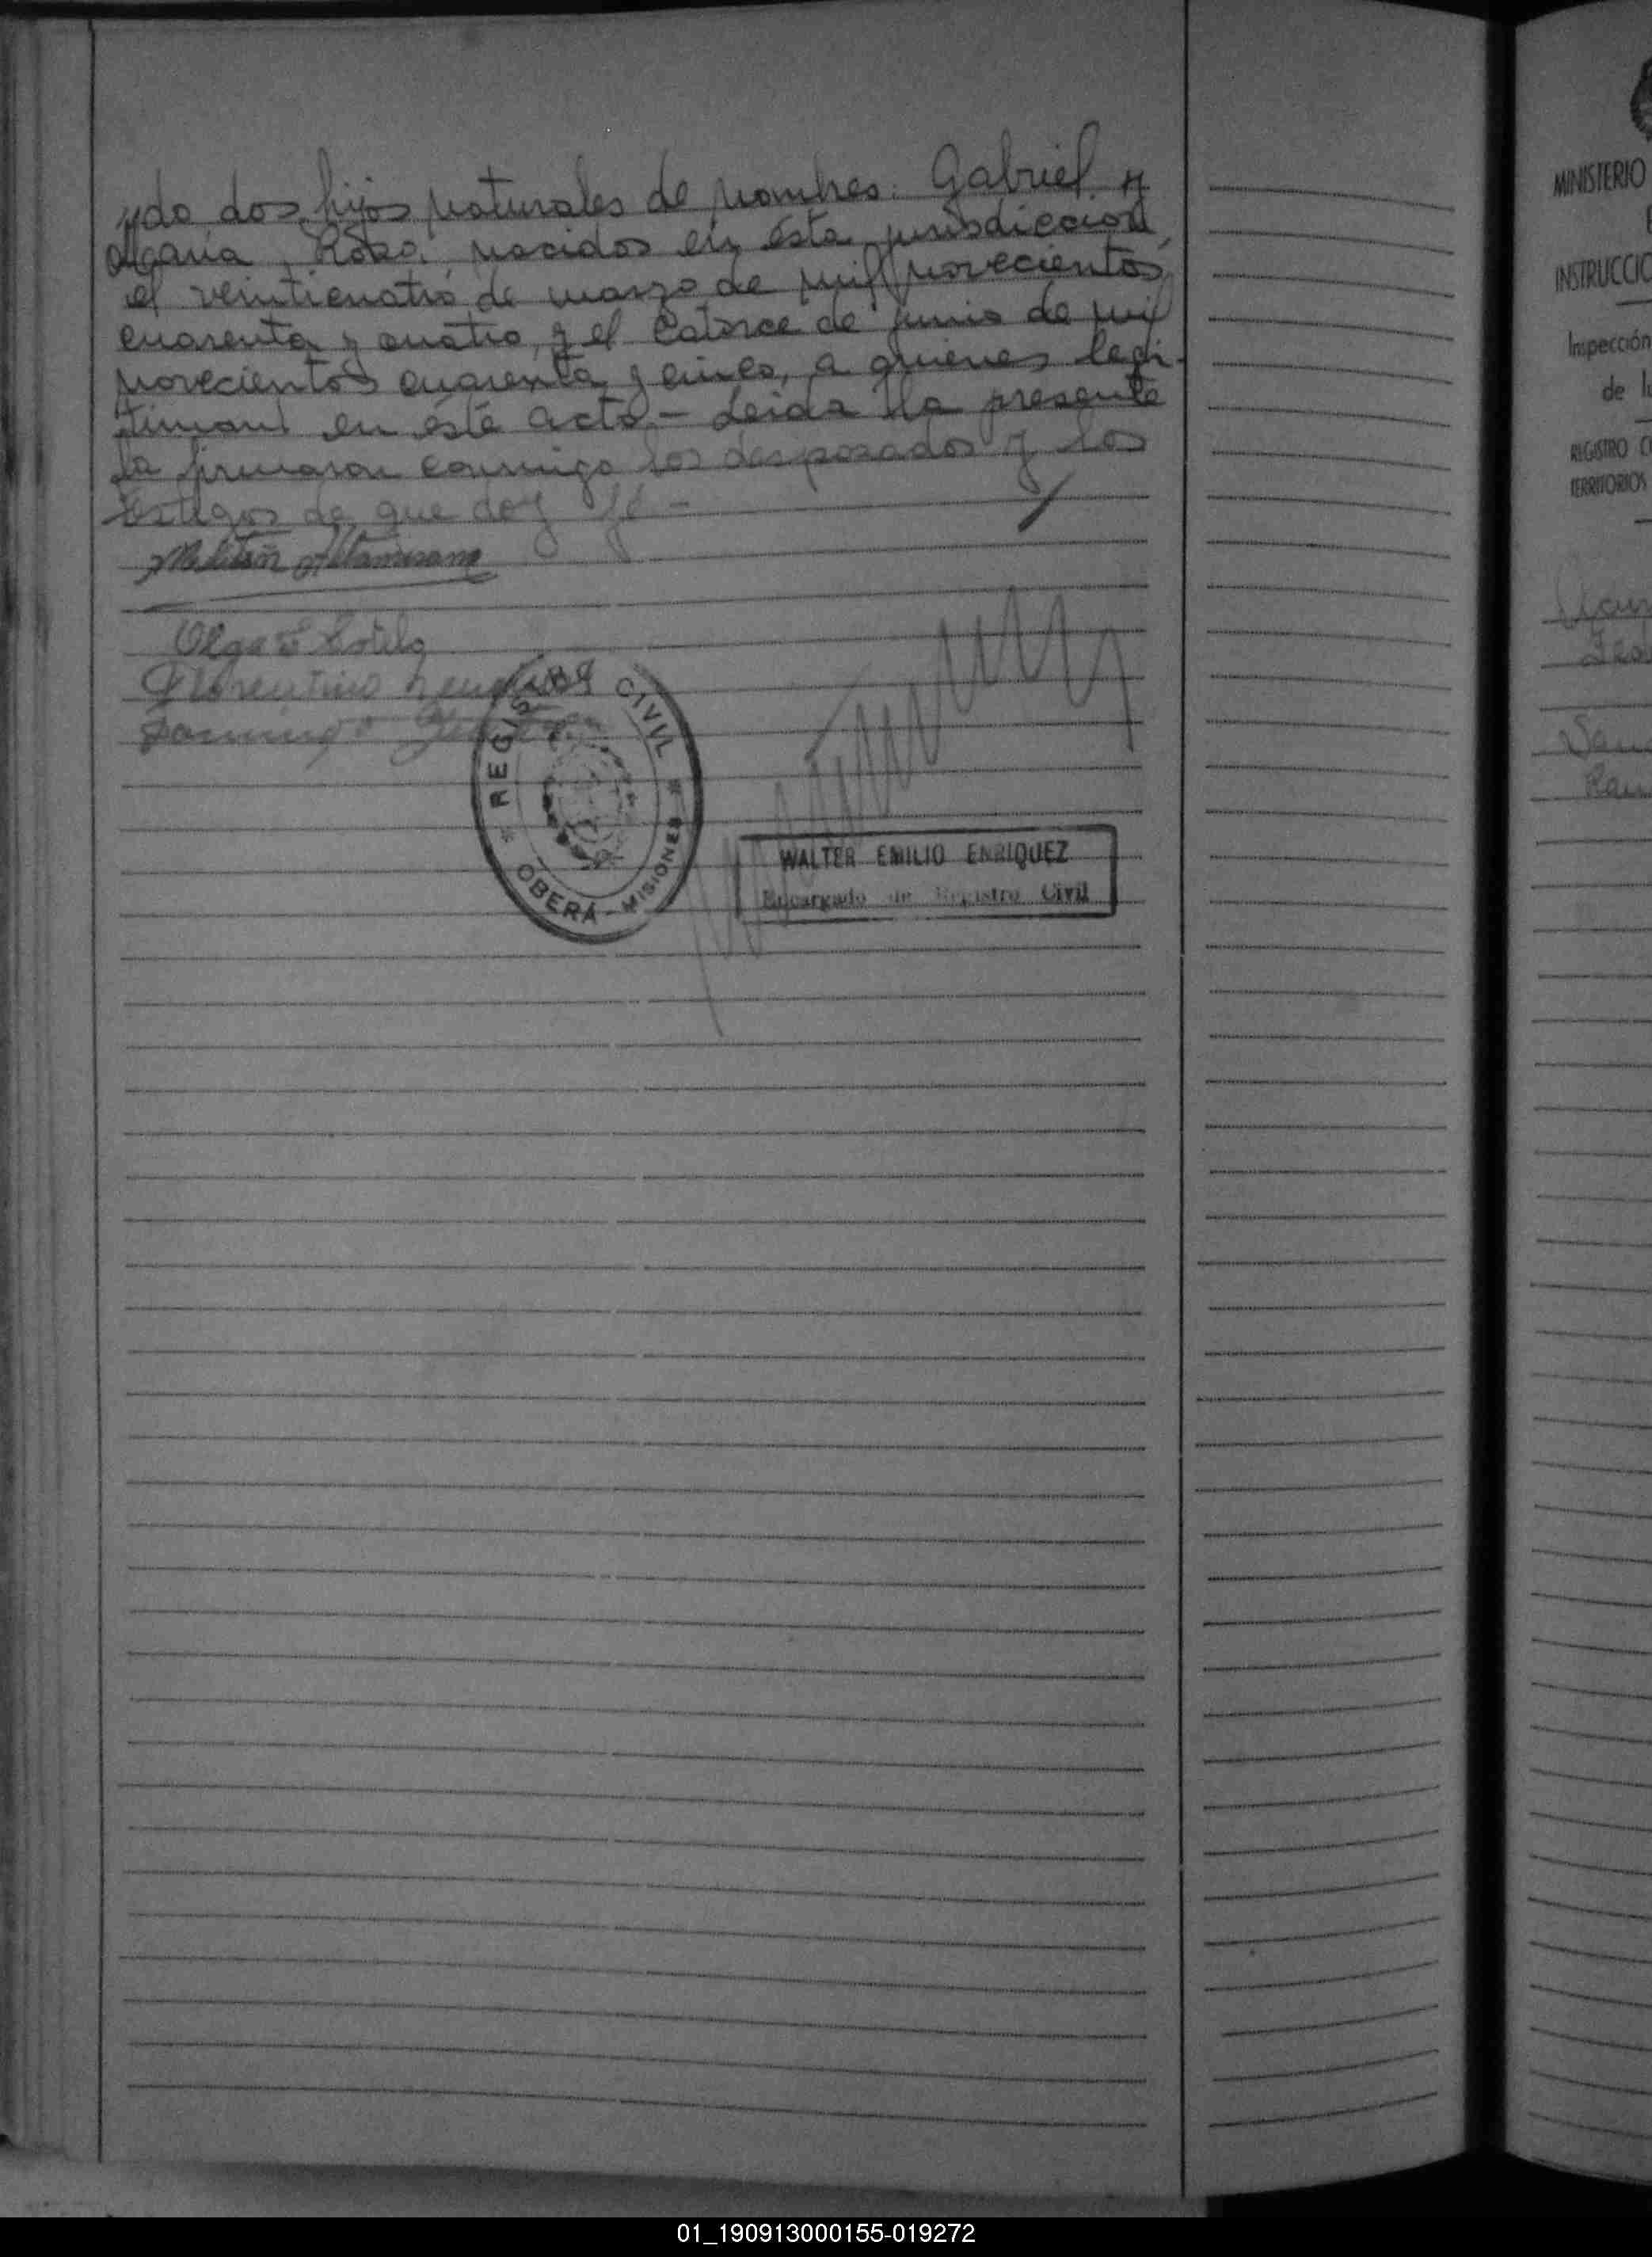 ndo dos hijos naturales de nombres: Gabriel y
María Rosa, nacidos en ésta jurisdicción
el veinticuatro de marzo de mil novecientos
cuarenta y cuatro, y el catorce de junio de mil
novecientos cuarenta y cinco, a quienes legi-
timan en éste acto.- Leida la presente
la firmaron conmigo los desposados y los
testigos de que doy fé -
Melitón Altamirano
Olga
Florentino
Domingo
REGISTRO CIVIL
OBERÁ - MISIONES
WALTER EMILIO ENRIQUEZ
Encargado de Registro Civil
MINISTERIO
INSTRUCCIO
Inspección
de l
REGISTRO C
TERRITORIOS
01_190913000155-019272